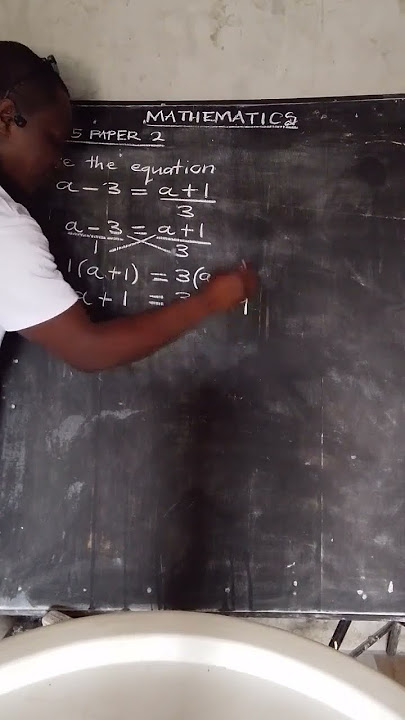 MATHEMATICS
5 PAPER 2
the equation
a - 3 = a + 1
3
a - 3 = a + 1
1 3
1(a + 1) = 3(a
a + 1 =